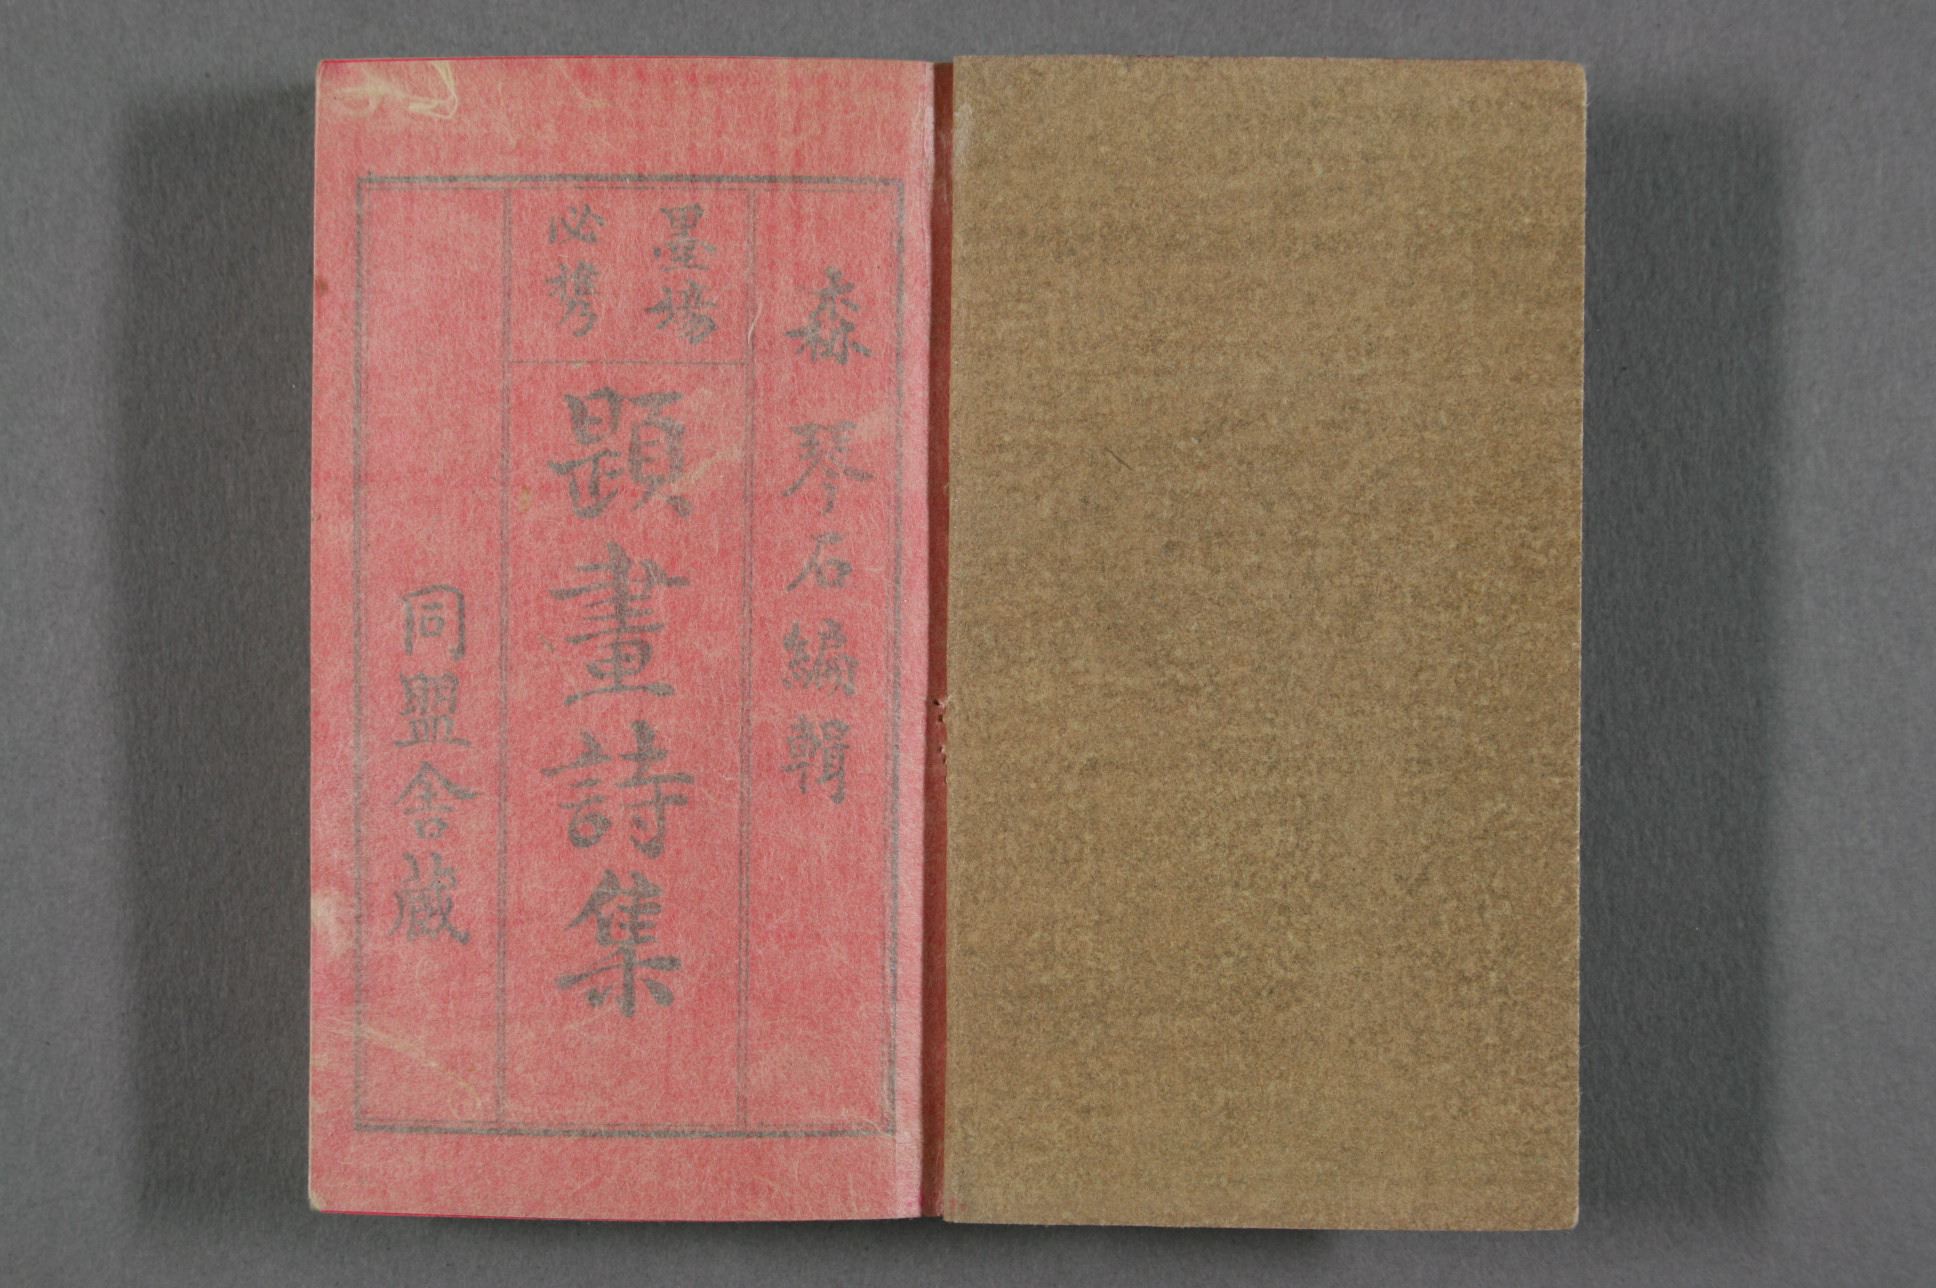 森琴石編輯
墨場
必携
題畫詩集
同盟舎蔵